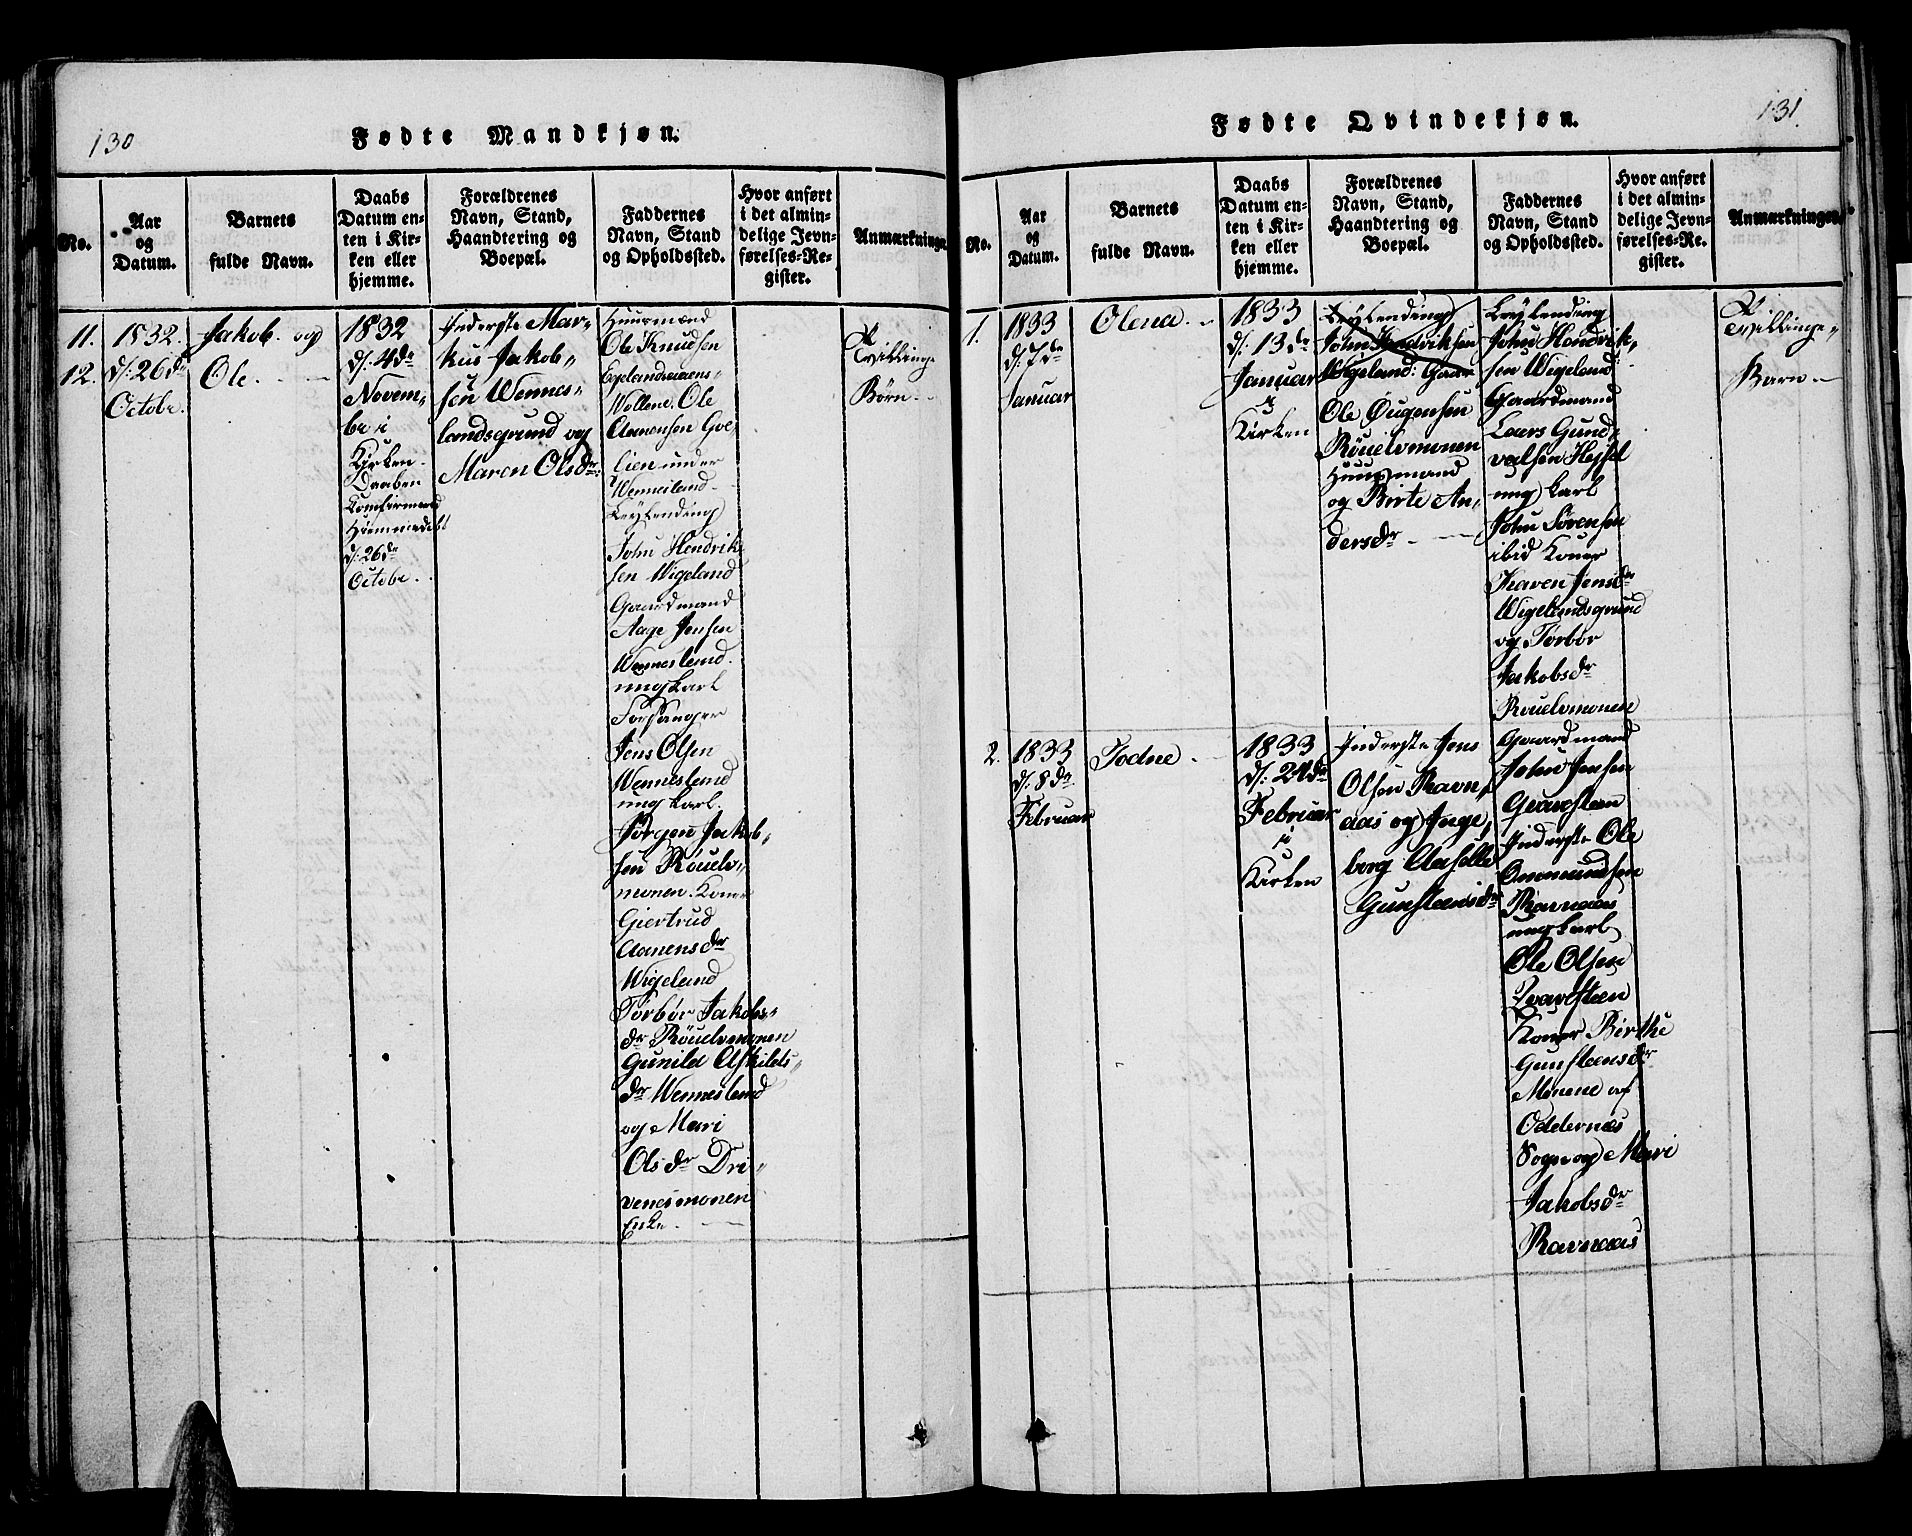 130
Fødte Mandkjøn.
No.
Aar
og
Datum.
Barnets
fulde Navn.
Daabs
Datum en-
ten i Kir-
ken eller
hjemme.
Forældrenes
Navn, Stand,
Haandtering og
Boepæl.
Faddernes
Navn, Stand
og Opholdssted.
Hvor anført
i det almin-
delige Jevn-
førelses-Re-
gister.
Anmærkninger.
11.
12.
1832.
d: 26de
Octobr.
Jakob. og
Ole.
1832
d: 4de
Novem-
br i
Kirken.
Daaben
Komfirmered
Hiemmedøbt
d: 26de
Octobr.
Inderste Mar-
kus Jakob-
sen Wennes-
landsgrund og
Maren Olsdr
Huusmænd
Ole Knudsen
Wollene, Ole
Clemensen
lien under
Wennesland
Leylending
John Hendrik-
sen Wigeland
Gaardmand
Aage Jensen
Wennesland.
ungkarl
Forsanger
Jens Olsen
Wennesland
ungkarl.
Jørgen Jakob-
sen Røuelv-
monen. Koner
Giertrud
Aanensdr
Wigeland
Torbør Jakobs-
dr Røuelvmonen
Gunild Askilds-
dr Wennesland
og Mari
Olsdr Dri-
venesmonen
Enke.
Tvillinge
Børn
131.
Fødte Qvindekjøn.
No.
Aar
og
Datum.
Barnets
fulde Navn.
Daabs
Datum en-
ten i Kir-
ken eller
hjemme.
Forældrenes
Navn, Stand,
Haandtering og
Boepæl.
Faddernes
Navn, Stand
og Opholdssted.
Hvor anført
i det almin-
delige Jevn-
førelses-Re-
gister.
Anmærkninger.
1.
1833
d: 7de
Januar
Olena
1833
d: 13de
Januar
i
Kirken
Leylending
John Hendriksen
Wigeland: Gaar
Ole Øugensen
Røuelvmonen
Huusmand
og Birte An-
dersdr
Leylending
John Hendrik-
sen Wigeland
Gaardmand
Laers Gund-
valsen
ungkarl
John Sørensen
ibid Koner
Karen Jensdr
Wigelandsgrund
og Torbør
Jakobsdr
Røuelvmonen
Tvillinge-
Barn
2.
1833
d: 8de
Februar
Todne
1833
d: 24de
Februar
i
Kirken
Inderste Jens
Olsen Ravn-
aas og Inge-
borg Aaselle
Gunsteensdr
Gaardmand
John Jensen
Qvarsteen
Inderste Ole
Ommundsen
Ravnaas
ungkarl
Ole Olsen
Qvarsteen
Koner Birthe
Gunsteensdr
Monene af
Oddernæs
Sogn og Mari
Jakobsdr
Ravnaas